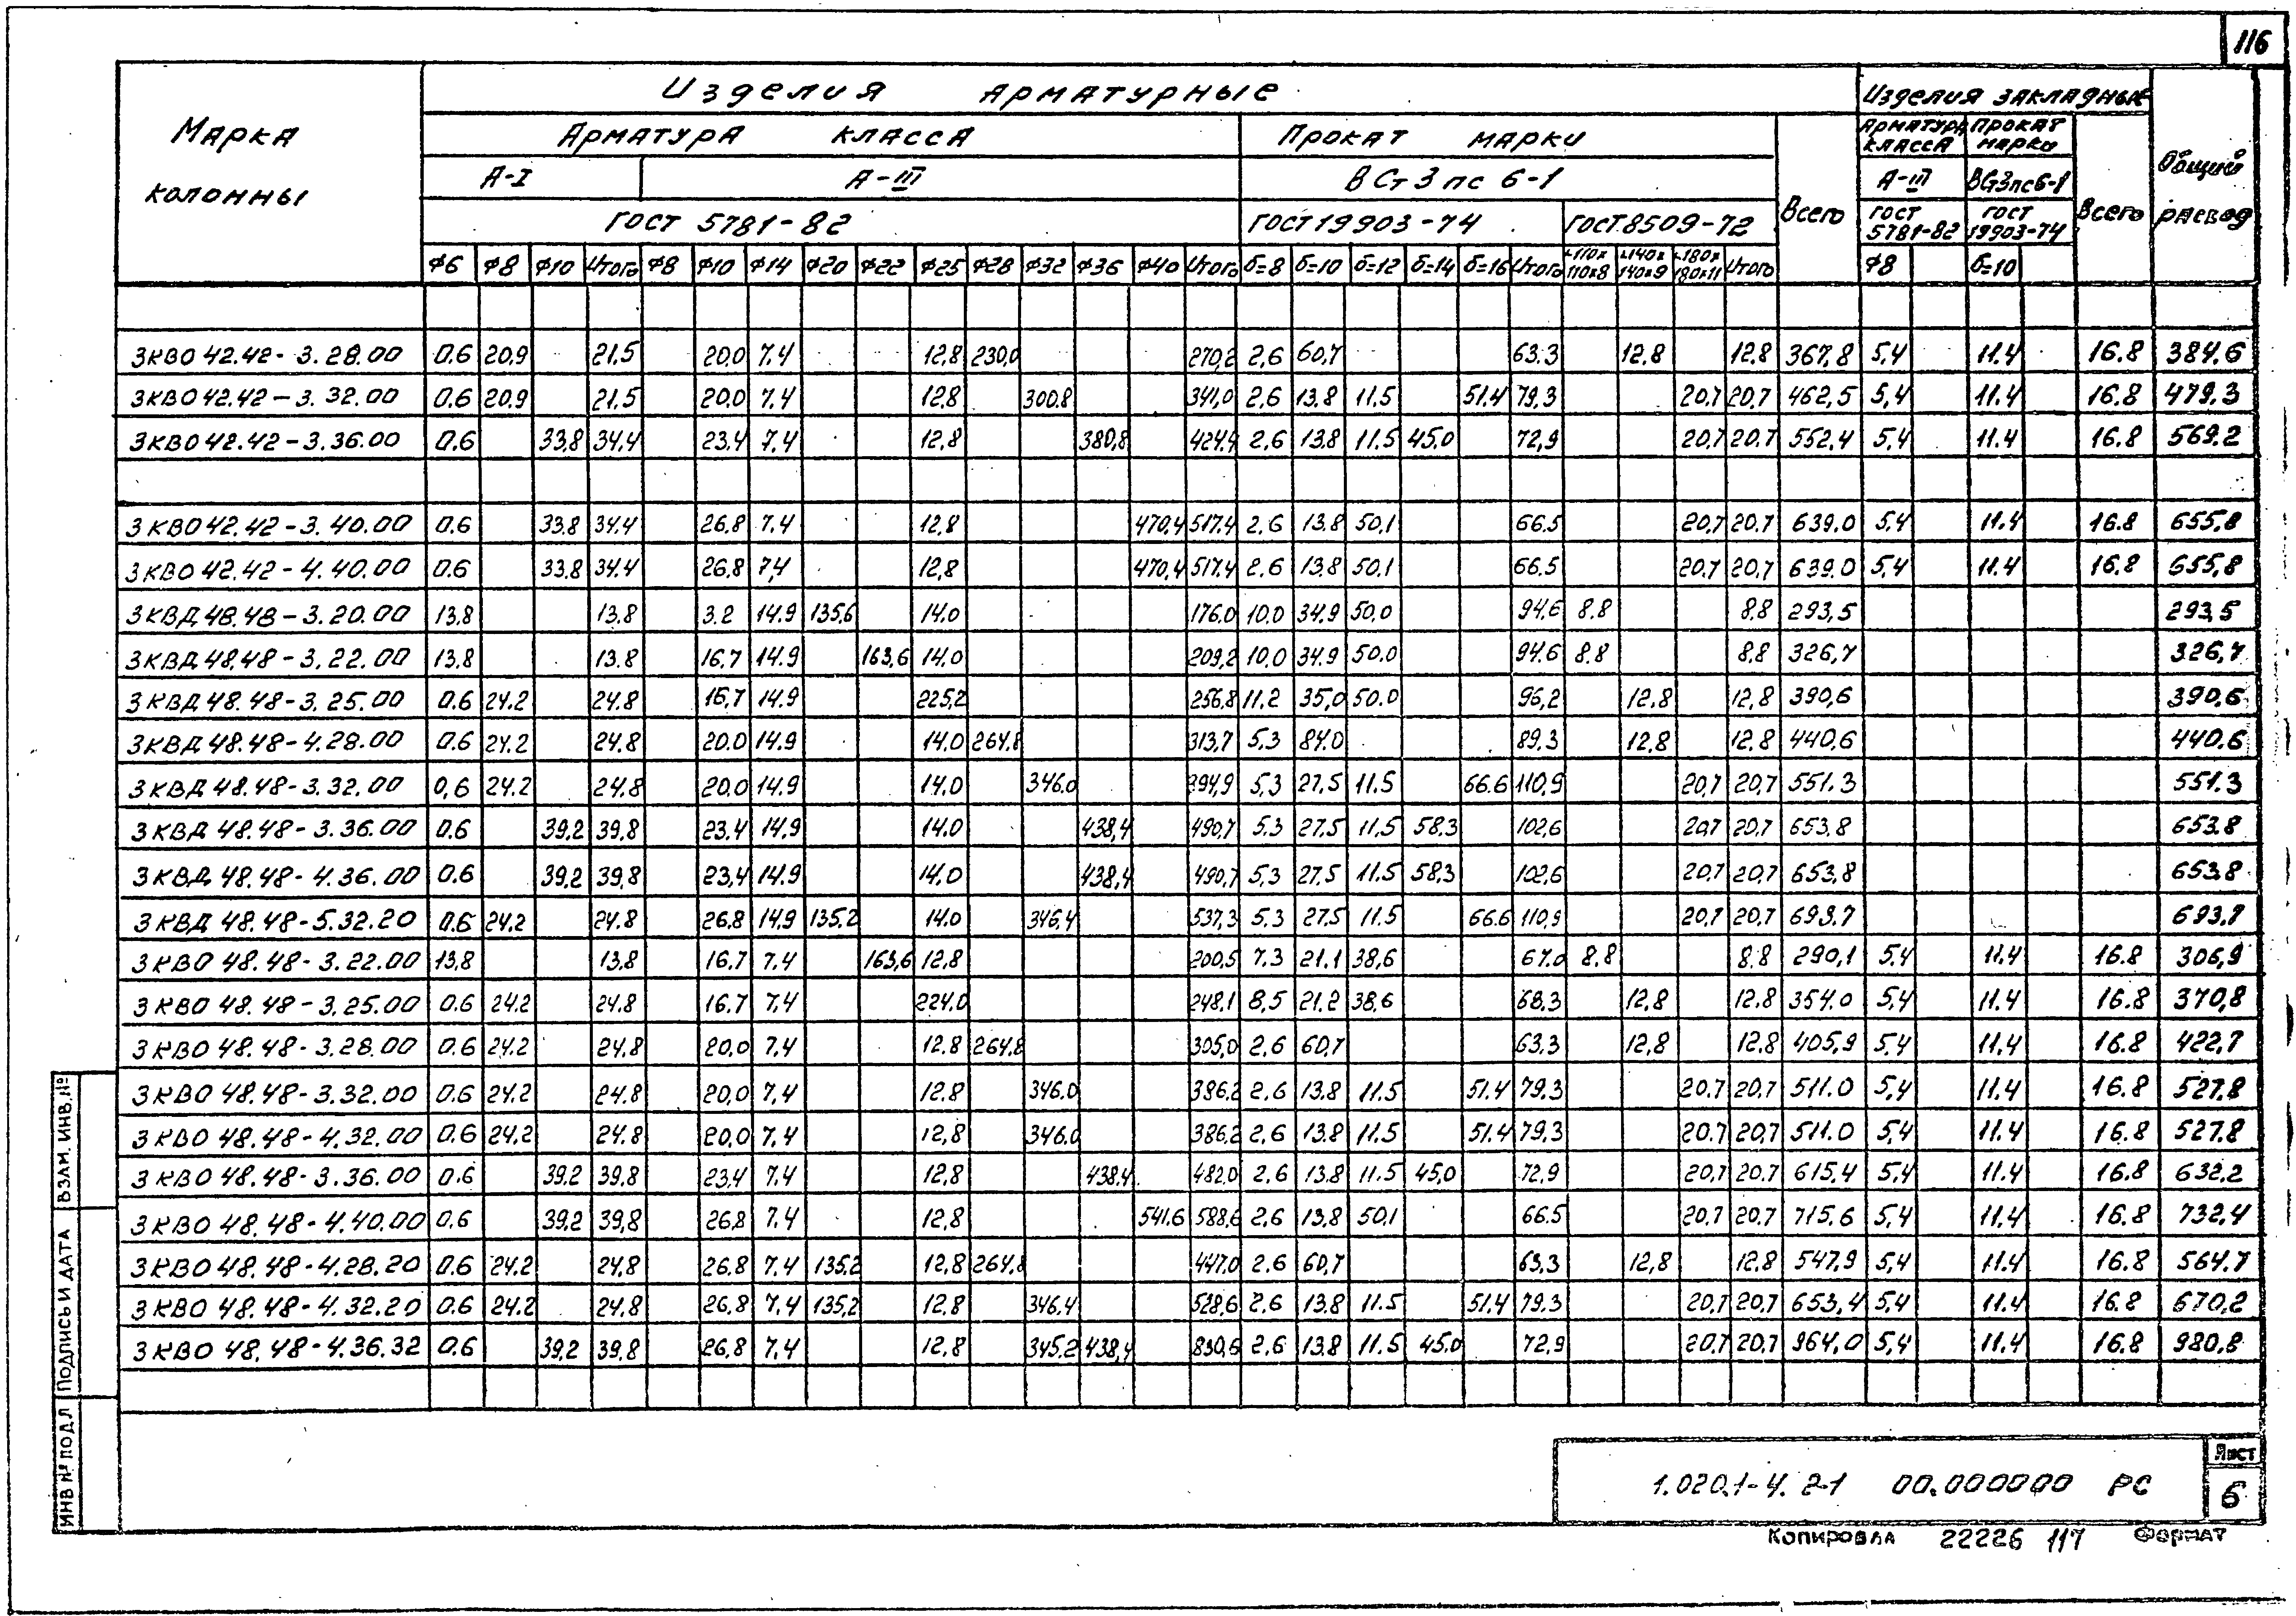 116
Марка колонны
Изделия арматурные
Изделия закладные
Общий расход
Арматура класса
Прокат марки
Всего
Арматура класса
Прокат марки
Всего
А-I
А-III
ВСт3пс6-1
А-III
ВСт3пс6-1
ГОСТ 5781-82
ГОСТ 19903-74
ГОСТ 8509-72
ГОСТ 5781-82
ГОСТ 19903-74
Ф6 Ф8 Ф10 Итого Ф8 Ф10 Ф14 Ф20 Ф22 Ф25 Ф28 Ф32 Ф36 Ф40 Итого б=8 б=10 б=12 б=14 б=16 Итого L110х110х8 L140х140х9 L180х180х11 Итого Ф8 б=10
3КВО 42.42-3.28.00 0.6 20.9 21.5 20.0 7.4 12.8 230.0 270,2 2,6 60.7 63.3 12.8 12.8 367,8 5,4 11.4 16.8 384.6
3КВО 42.42-3.32.00 0.6 20.9 21.5 20.0 7.4 12.8 300.8 341,0 2,6 13.8 11.5 51.4 79.3 20.7 20,7 462,5 5,4 11.4 16.8 479.3
3КВО 42.42-3.36.00 0.6 33,8 34,4 23.4 7.4 12,8 380,8 424,4 2,6 13.8 11.5 45,0 72,9 20,7 20.7 552,4 5,4 11.4 16.8 569.2
3КВО 42.42-3.40.00 0.6 33.8 34.4 26.8 7.4 12.8 470,4 517.4 2,6 13.8 50,1 66.5 20,7 20.7 639.0 5,4 11.4 16.8 655,8
3КВО 42.42-4.40.00 0.6 33.8 34.4 26,8 7,4 12,8 470,4 517.4 2,6 13.8 50.1 66.5 20.7 20,7 639.0 5,4 11.4 16.8 655,8
3КВД 48.48-3.20.00 13,8 13,8 3.2 14.9 135.6 14.0 176.0 10.0 34.9 50,0 94,6 8.8 8.8 293,5 293,5
3КВД 48.48-3.22.00 13.8 13.8 16,7 14.9 163,6 14.0 209,2 10,0 34.9 50.0 94.6 8.8 8,8 326,7 326,7
3КВД 48.48-3.25.00 0.6 24.2 24.8 16,7 14.9 225,2 256,8 11.2 35,0 50.0 96,2 12,8 12,8 390,6 390,6
3КВД 48.48-4.28.00 0.6 24.2 24.8 20.0 14.9 14.0 264,8 313,7 5,3 84.0 89.3 12,8 12,8 440.6 440.6
3КВД 48.48-3.32.00 0,6 24.2 24.8 20.0 14.9 14.0 346.0 394,9 5,3 27,5 11.5 66.6 110,9 20,7 20,7 551.3 551.3
3КВД 48.48-3.36.00 0.6 39.2 39,8 23.4 14,9 14.0 438,4 490,7 5.3 27.5 11.5 58.3 102,6 20,7 20,7 653.8 653.8
3КВД 48.48-4.36.00 0.6 39,2 39,8 23,4 14.9 14,0 438,4 490,7 5,3 27,5 11.5 58,3 102,6 20,7 20,7 653,8 653,8
3КВД 48.48-5.32.20 0.6 24.2 24.8 26.8 14,9 135,2 14.0 346,4 537,3 5.3 27.5 11.5 66.6 110,9 20,7 20,7 693.7 693,7
3КВО 48.48-3.22.00 13,8 13,8 16.7 7.4 163,6 12.8 200,5 7.3 21.1 38,6 67.0 8.8 8.8 290,1 5,4 11.4 16.8 306,9
3КВО 48.48-3.25.00 0.6 24.2 24.8 16.7 7,4 224.0 248,1 8,5 21.2 38,6 68,3 12,8 12.8 354.0 5,4 11.4 16.8 370,8
3КВО 48.48-3.28.00 0.6 24.2 24,8 20,0 7,4 12.8 264,8 305,0 2,6 60,7 63,3 12,8 12,8 405,9 5,4 11.4 16.8 422,7
3КВО 48.48-3.32.00 0.6 24.2 24.8 20,0 7.4 12.8 346.0 386,2 2,6 13.8 11.5 51.4 79,3 20.7 20,7 511.0 5,4 11.4 16.8 527.8
3КВО 48.48-4.32.00 0.6 24,2 24.8 20,0 7,4 12,8 346.0 386,2 2,6 13.8 11.5 51.4 79,3 20.7 20,7 511.0 5,4 11.4 16.8 527.8
3КВО 48.48-3.36.00 0.6 39.2 39.8 23,4 7.4 12,8 438,4 482,0 2,6 13.8 11.5 45,0 72,9 20,7 20.7 615,4 5,4 11.4 16.8 632,2
3КВО 48.48-4.40.00 0.6 39,2 39,8 26,8 7,4 12,8 541.6 588,6 2,6 13.8 50,1 66.5 20,7 20.7 715.6 5,4 11.4 16.8 732,4
3КВО 48.48-4.28.20 0.6 24.2 24,8 26,8 7,4 135,2 12,8 264,8 447,0 2,6 60,7 63,3 12,8 12,8 547,9 5,4 11.4 16.8 564.7
3КВО 48.48-4.32.20 0.6 24.2 24.8 26,8 7,4 135,2 12.8 346.4 528,6 2,6 13.8 11.5 51.4 79.3 20,7 20,7 653,4 5,4 11.4 16.8 670,2
3КВО 48.48-4.36.32 0.6 39,2 39,8 26,8 7,4 12,8 345.2 438,4 830,6 2,6 13.8 11.5 45.0 72,9 20,7 20,7 964,0 5,4 11.4 16.8 980,8
ИНВ № ПОДЛ ПОДПИСЬ И ДАТА ВЗАМ. ИНВ. №
1.020.1-4. 2-1 00.000000 РС
Лист
6
Копировла 22226 117 Формат